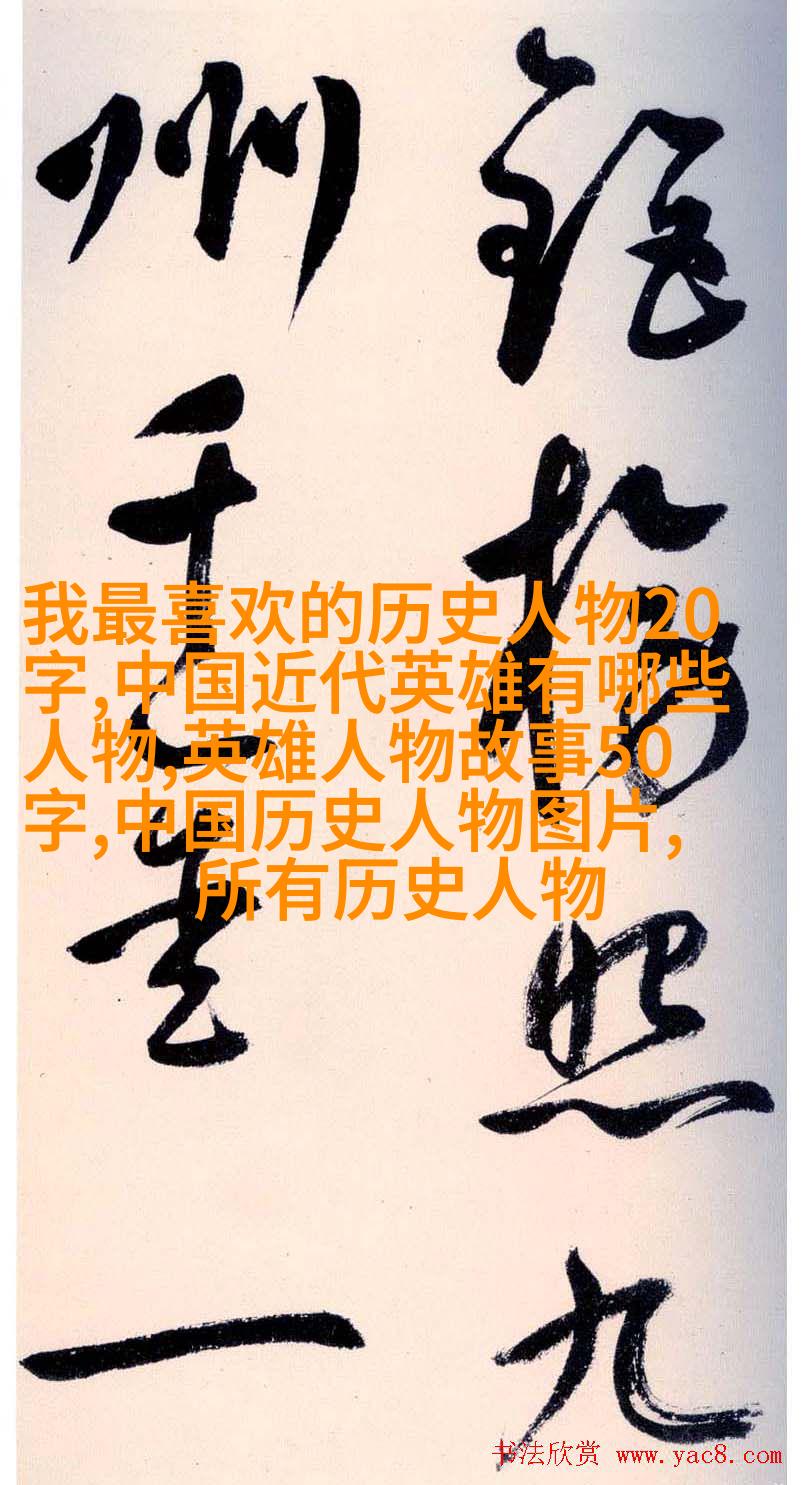 照九
州千
一
我最喜欢的历史人物20
字,中国近代英雄有哪些
人物,英雄人物故事50
字,中国历史人物图片,
所有历史人物
书法欣赏 www.yac8.com